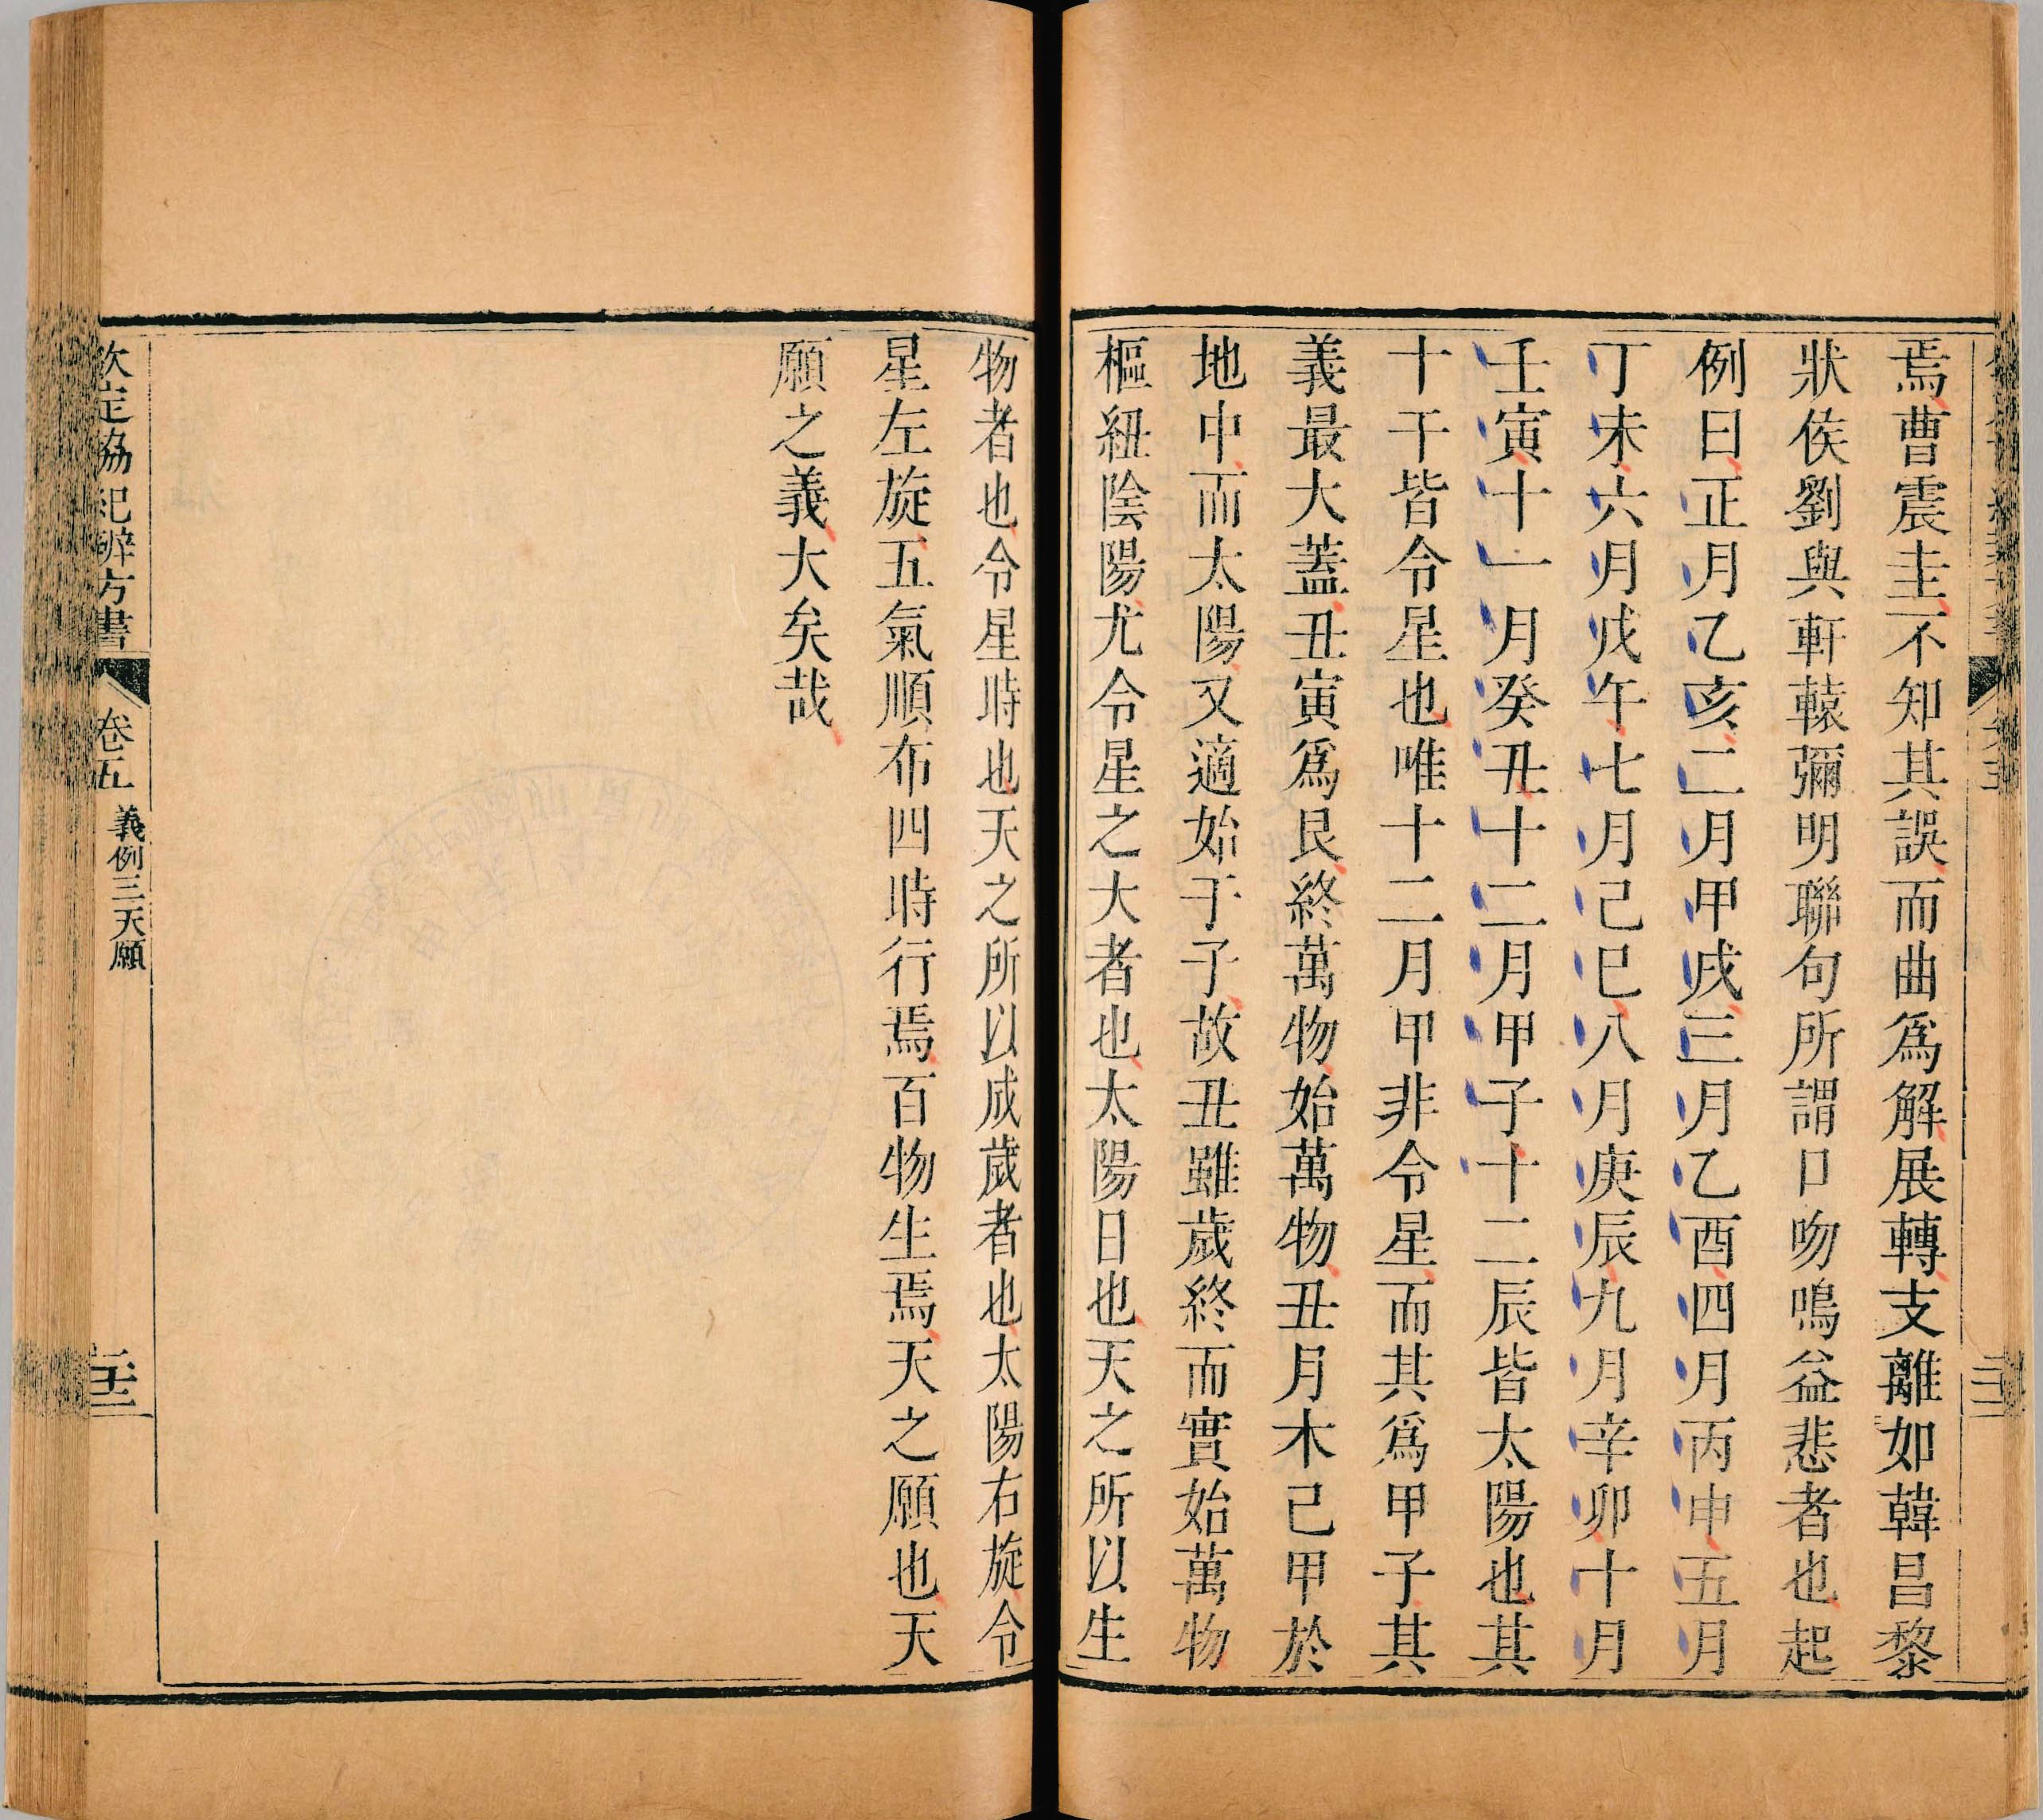 焉曹震圭不知其誤而曲爲解展轉支離如韓昌黎
狀侯劉與軒轅彌明聯句所謂口吻鳴益悲者也起
例曰正月乙亥二月甲戌三月乙酉四月丙申五月
丁未六月戊午七月己巳八月庚辰九月辛卯十月
壬寅十一月癸丑十二月甲子十二辰皆太陽也其
十干皆令星也唯十二月甲非令星而其爲甲子其
義最大蓋丑寅爲艮終萬物始萬物丑月木己甲於
地中而太陽又適始于子故丑雖歲終而實始萬物
樞紐陰陽尤令星之大者也太陽日也天之所以生
物者也令星時也天之所以成歲者也太陽右旋令
星左旋五氣順布四時行焉百物生焉天之願也天
願之義大矣哉
欽定協紀辨方書
卷五
義例三天願